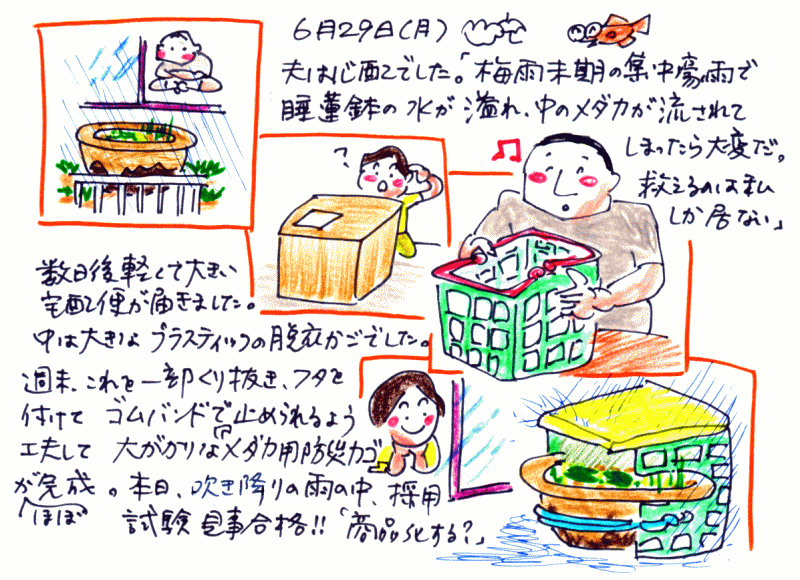 6月29日(月)
夫は心配でした。「梅雨末期の集中豪雨で
睡蓮鉢の水が溢れ、中のメダカが流されて
しまったら大変だ。
救えるのは私
しか居ない」
?
数日後軽くて大きい
宅配便が届きました。
中は大きな プラスティックの脱衣かごでした。
週末、これを一部くり抜き、フタを
付けて ゴムバンドで止められるよう
工夫して 大がかりなメダカ用防災カゴ
が完成。本日、吹き降りの雨の中、採用
ほぼ
試験見事合格!!「商品化する?」